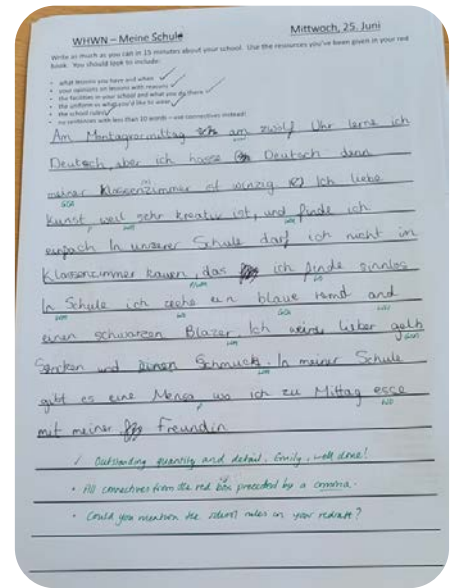 WHWN – Meine Schule
Mittwoch, 25. Juni
Write as much as you can in 15 minutes about your school. Use the resources you've been given in your red
book. You should look to include:
• what lessons you have and when
• your opinions on lessons with reasons
• the facilities in your school and what you do there
• the uniform vs what you'd like to wear
• the school rules
• no sentences with less than 10 words – use connectives instead!
Am Montagvormittag am zwölf Uhr lerne ich
Deutsch, aber ich hasse Deutsch denn
meiner Klassenzimmer ist winzig. Ich liebe
Kunst, weil sehr kreativ ist, und finde ich
einfach In unserer Schule darf ich nicht in
Klassenzimmer kauen, das ich finde sinnlos
In Schule ich ein blaue Hemd and
einen schwarzen Blazer. Ich lieber gelb
Socken und Schmuck. In meiner Schule
gibt es eine Mensa, wo ich zu Mittag esse
mit meiner Freundin
Outstanding quantity and detail, Emily, well done!
• All connectives from the red box preceded by a comma.
• Could you mention the rules in your redraft?